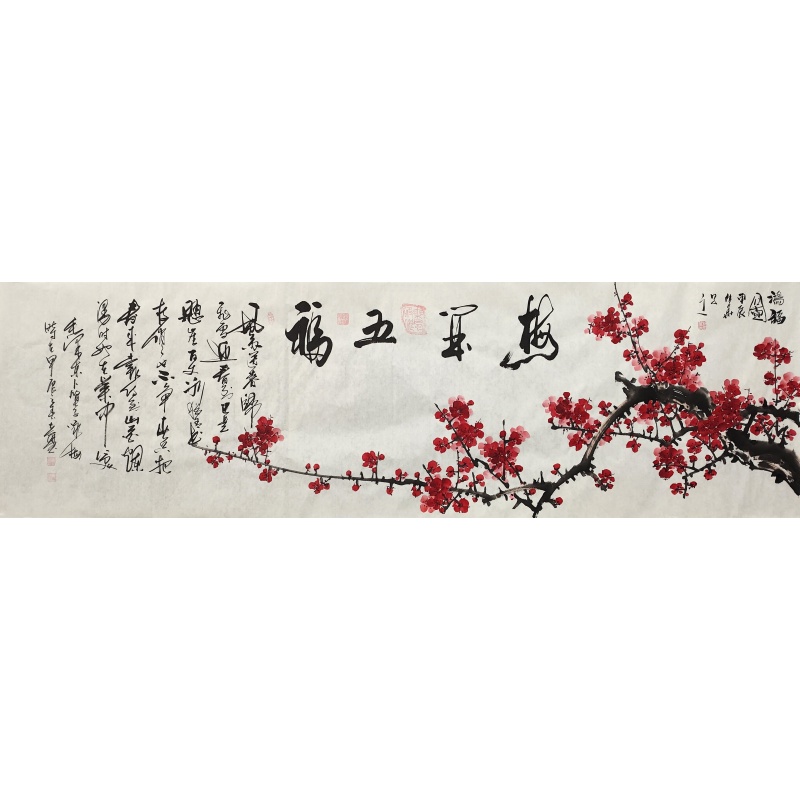 梅開五福
風雨送春歸
飛雪迎春到已是
懸崖百丈冰猶有花
枝俏俏也不爭春只把
春來報待到山花爛
漫時她在叢中笑
毛澤東卜算子咏梅
時在甲辰